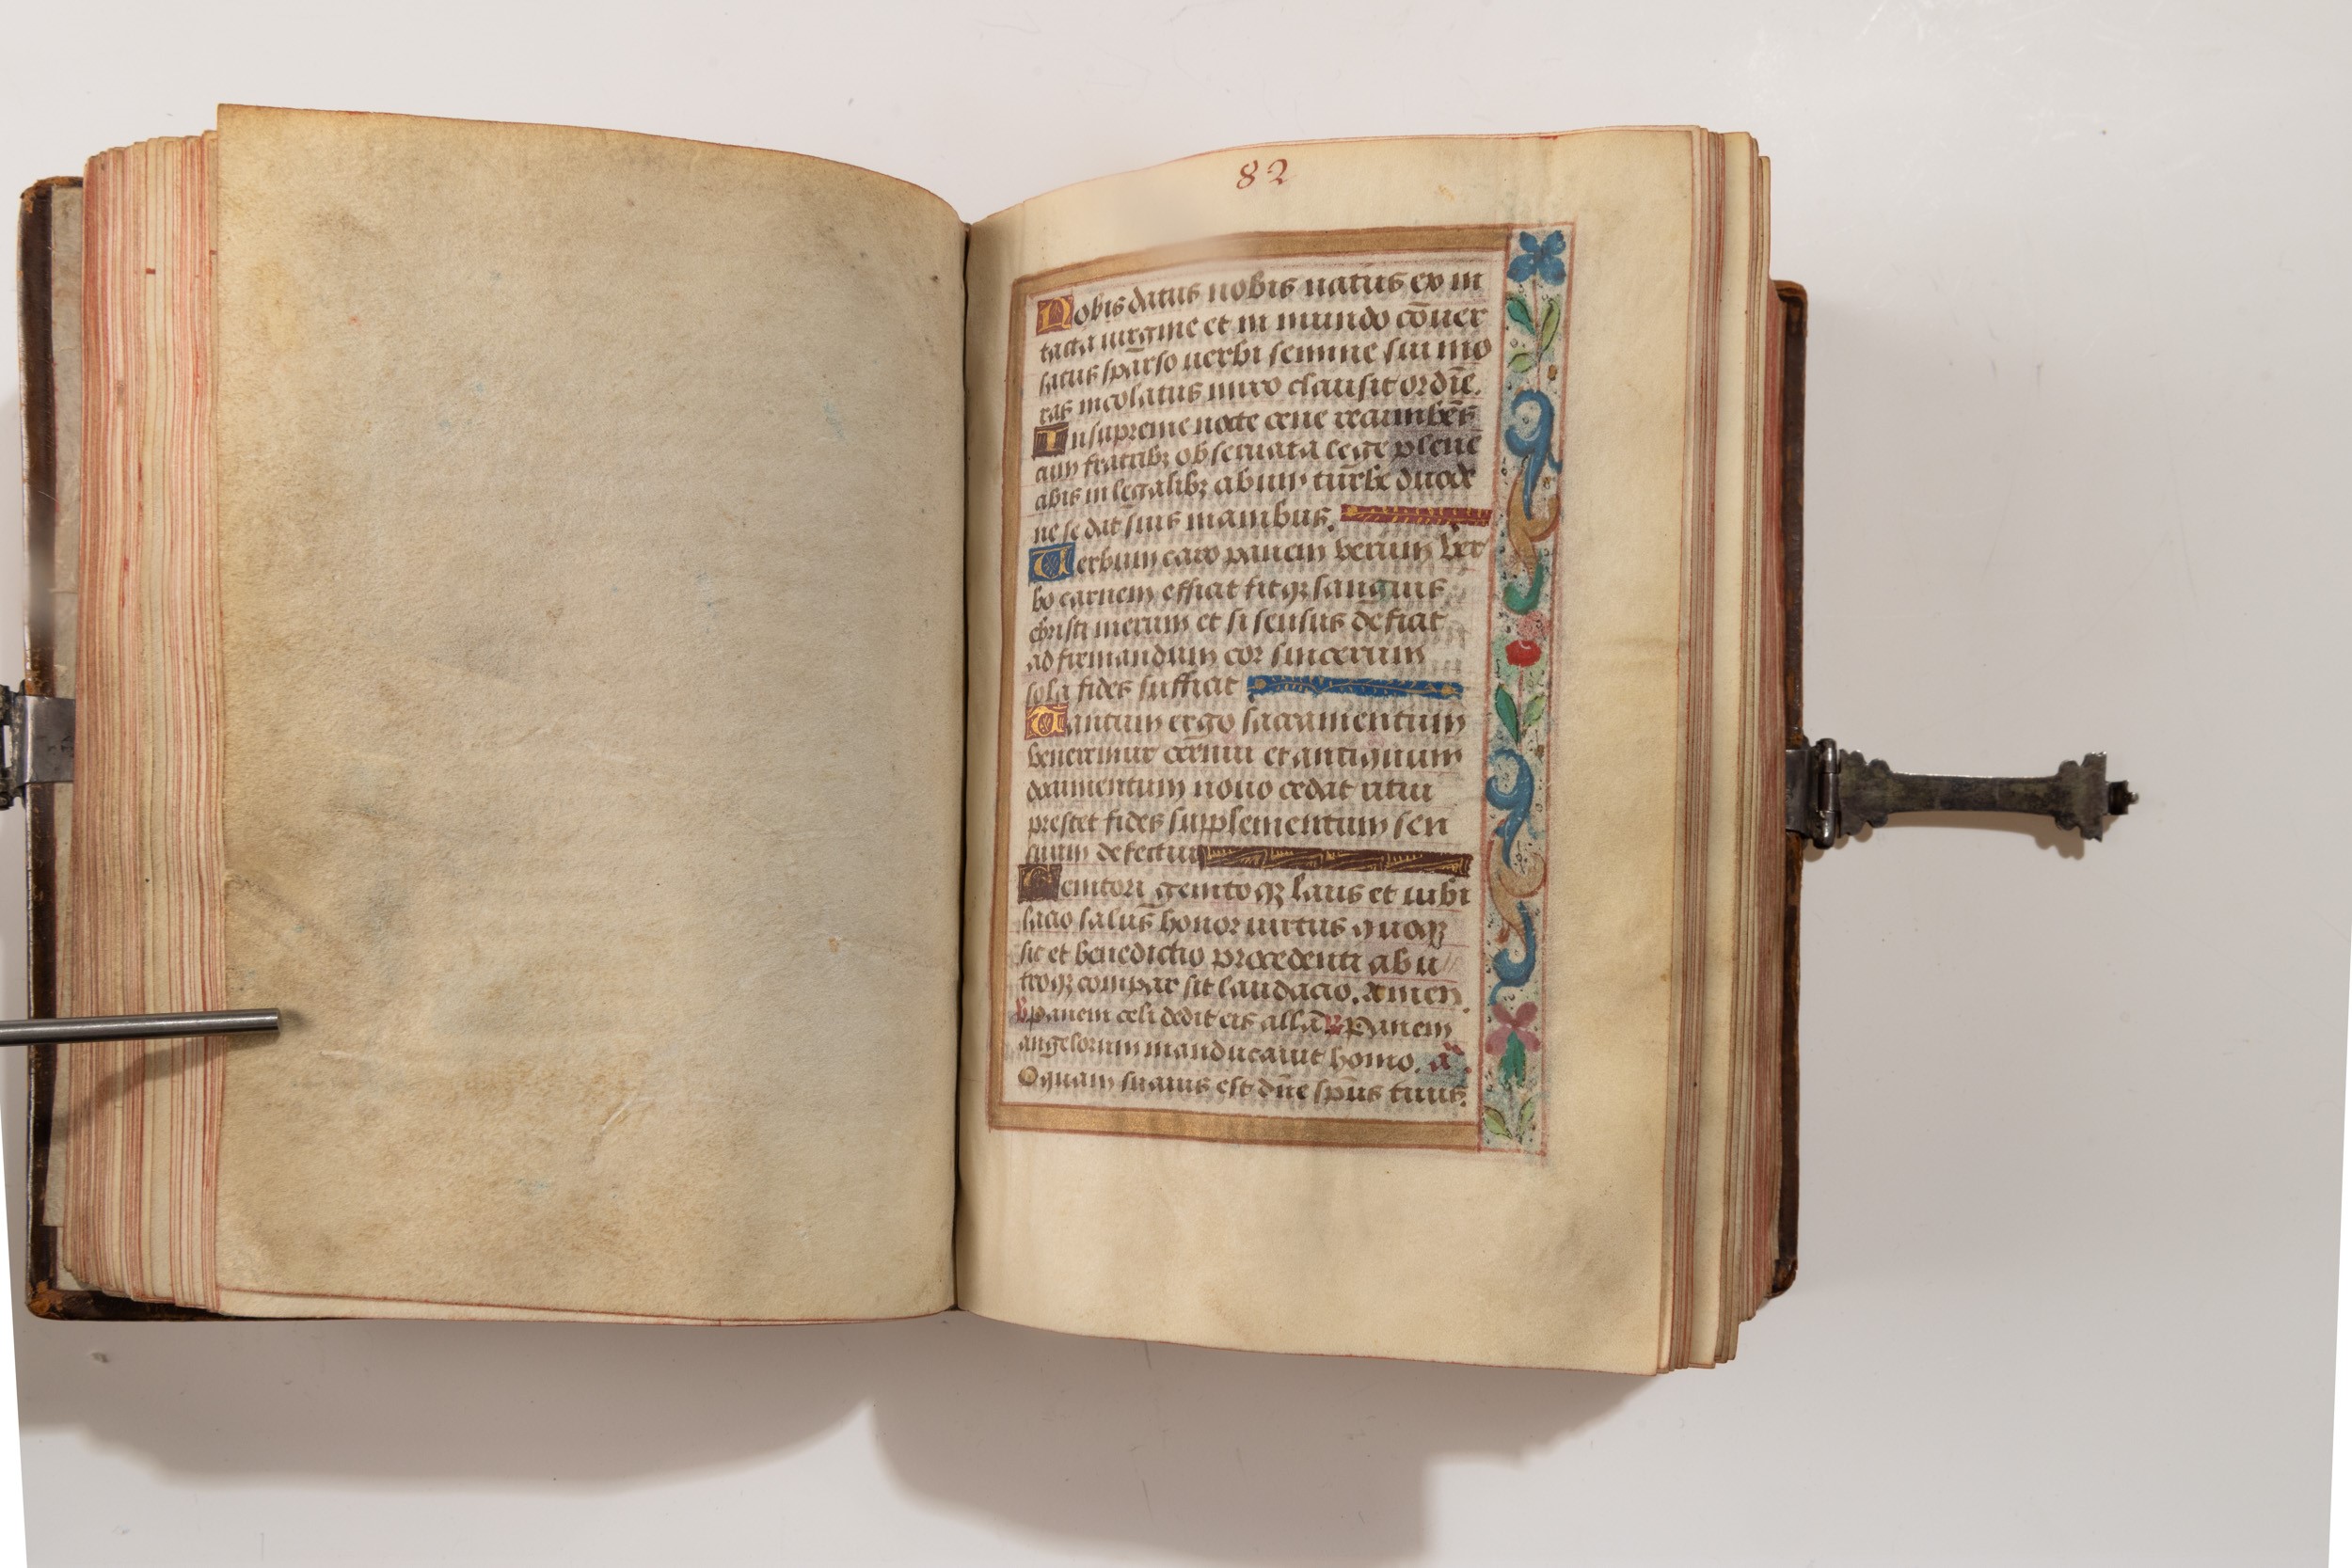 82
Nobis datus nobis natus ex in
tacta uirgine et in mundo cōuer
satus sparso uerbi semine sui mo
ras incolatus miro clausit ordīe.
In supreme nocte cene recumbēs
cum fratribꝫ obseruata lege plene
cibis in legalibꝫ cibum turbe duode
ne se dat suis manibus.
Uerbum caro panem verum ver
bo carnem efficit fitqꝫ sanguis
christi merum et si sensus deficit
ad firmandum cor sincerum
sola fides sufficit
Tantum ergo sacramentum
veneremur cernui et antiquum
documentum nouo cedat ritui
prestet fides supplementum sen
suum defectui
Genitori genitoqꝫ laus et iubi
lacio salus honor uirtus quoqꝫ
sit et benedictio procedenti ab u
troqꝫ compar sit laudacio. Amen
v̷ panem celi dedit eis allā. R̷ Panem
angelorum manducauit homo. añ.
O quam suauis est dñe spūs tuus.